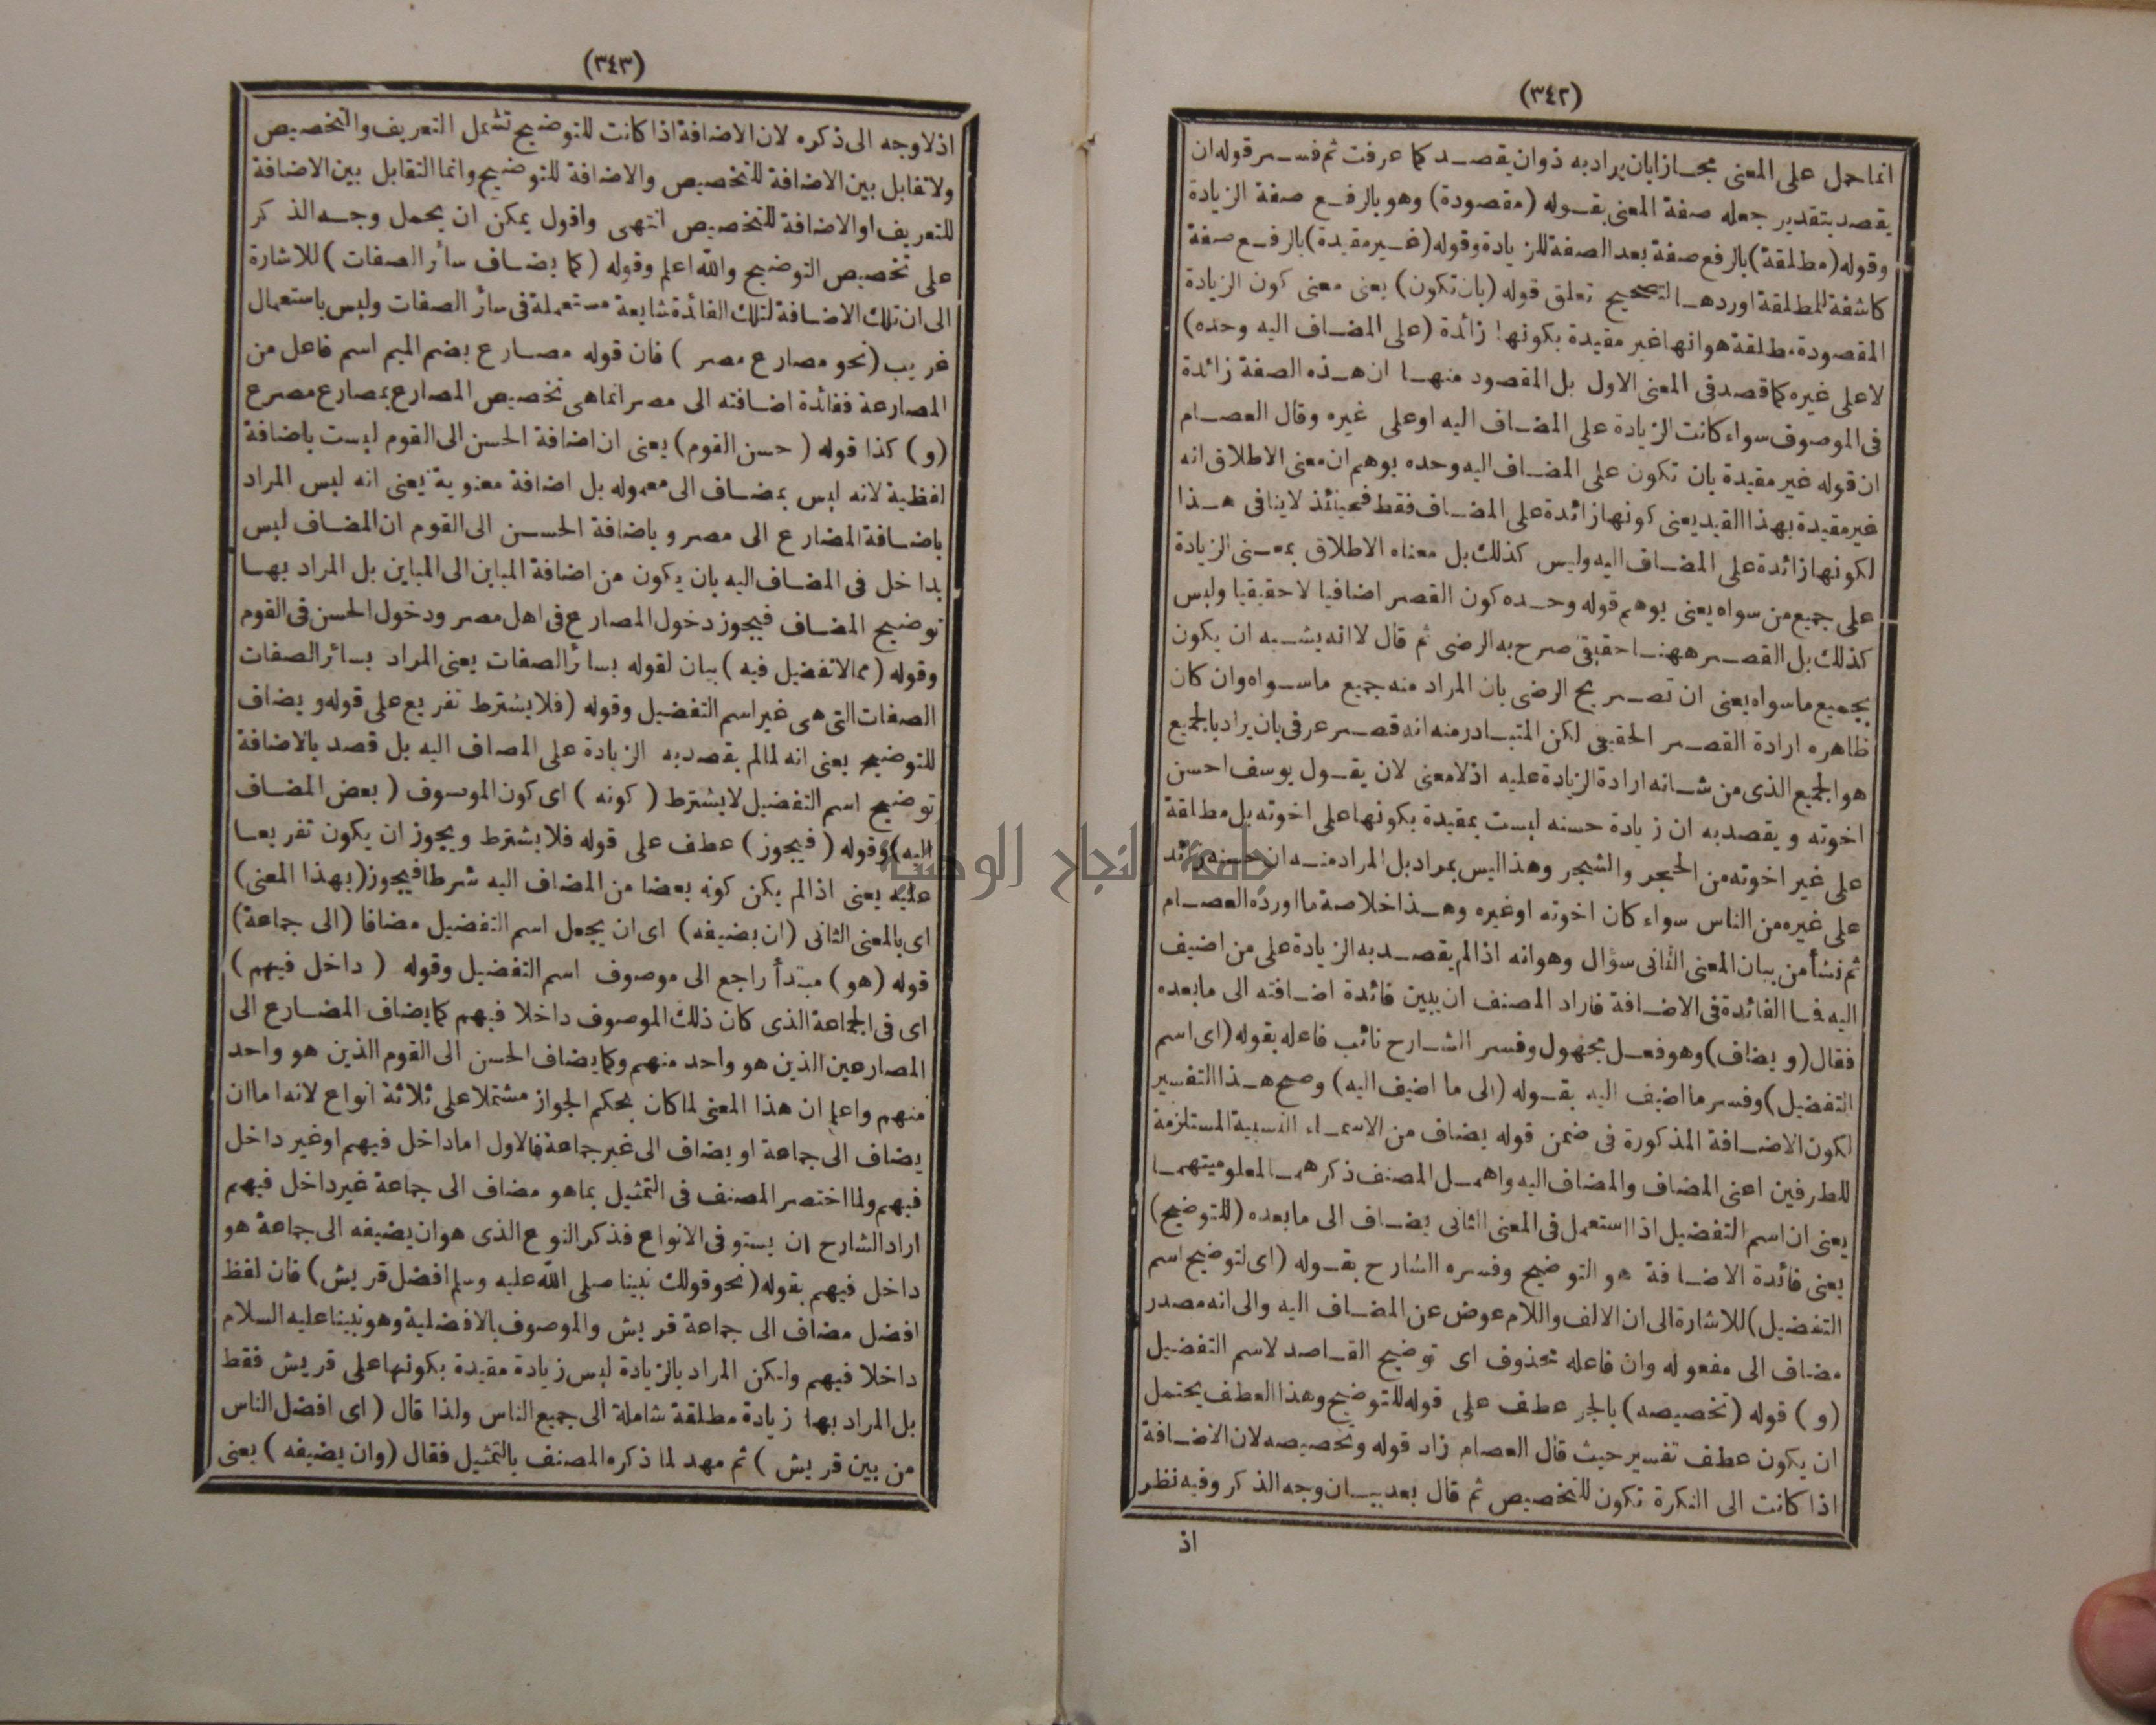 (٣٤٢)
انما حمل على المعنى مجازا بان يراد به ذو ان يقصد كما عرفت ثم فسر قوله ان
يقصد بتقدير جعله صفة المعنى بقوله (مقصودة) وهو بالرفع صفة الزيادة
وقوله (مطلقة) بالرفع صفة بعد الصفة للزيادة وقوله (غير مقيدة) بالرفع صفة
كاشفة للمطلقة اوردها لتصحيح تعلق قوله (بان تكون) يعنى معنى كون الزيادة
المقصودة مطلقة هو انها غير مقيدة بكونها زائدة (على المضاف اليه وحده)
لا على غيره كما قصد فى المعنى الاول بل المقصود منها ان هذه الصفة زائدة
فى الموصوف سواء كانت الزيادة على المضاف اليه او على غيره وقال العصام
ان قوله غير مقيدة بان تكون على المضاف اليه وحده يوهم ان معنى الاطلاق انه
غير مقيدة بهذا القيد يعنى كونها زائدة على المضاف فقط فحينئذ لا ينافى هذا
لكونها زائدة على المضاف اليه وليس كذلك بل معناه الاطلاق بمعنى الزيادة
على جميع من سواه يعنى يوهم قوله وحده كون القصر اضافيا لا حقيقيا وليس
كذلك بل القصر ههنا حقيقى صرح به الرضى ثم قال لا انه يشبه ان يكون
بجميع ما سواه يعنى ان تصريح الرضى بان المراد منه جميع ما سواه وان كان
ظاهره ارادة القصر الحقيقى لكن المتبادر منه انه قصر عرفى بان يراد بالجميع
هو الجميع الذى من شانه ارادة الزيادة عليه اذ لا معنى لان يقول يوسف احسن
اخوته و يقصد به ان زيادة حسنه ليست بمقيدة بكونها على اخوته بل مطلقة
على غير اخوته من الحجر والشجر وهذا ليس بمراد بل المراد منه ان حسنه زائد
على غيره من الناس سواء كان اخوته او غيره وهذا خلاصة ما اورده العصام
ثم نشأ من بيان المعنى الثانى سؤال وهو انه اذا لم يقصد به الزيادة على من اضيف
اليه فما الفائدة فى الاضافة فاراد المصنف ان يبين فائدة اضافته الى ما بعده
فقال (و يضاف) وهو فعل مجهول وفسر الشارح نائب فاعله بقوله (اى اسم
التفضيل) وفسر ما اضيف اليه بقوله (الى ما اضيف اليه) وصح هذا التفسير
لكون الاضافة المذكورة فى ضمن قوله يضاف من الاسماء النسبية المستلزمة
للطرفين اعنى المضاف والمضاف اليه واهمل المصنف ذكرهما لمعلوميتهما
يعنى ان اسم التفضيل اذا استعمل فى المعنى الثانى يضاف الى ما بعده (للتوضيح)
يعنى فائدة الاضافة هو التوضيح وفسره الشارح بقوله (اى لتوضيح اسم
التفضيل) للاشارة الى ان الالف واللام عوض عن المضاف اليه والى انه مصدر
مضاف الى مفعوله وان فاعله محذوف اى توضيح القاصد لاسم التفضيل
(و) قوله (تخصيصه) بالجر عطف على قوله للتوضيح وهذا العطف يحتمل
ان يكون عطف تفسير حيث قال العصام زاد قوله وتخصيصه لان الاضافة
اذا كانت الى النكرة تكون للتخصيص ثم قال بعد بيان وجه الذكر وفيه نظر
اذ
(٣٤٣)
اذ لا وجه الى ذكره لان الاضافة اذا كانت للتوضيح تشمل التعريف والتخصيص
ولا تقابل بين الاضافة للتخصيص والاضافة للتوضيح وانما التقابل بين الاضافة
للتعريف او الاضافة للتخصيص انتهى واقول يمكن ان يحمل وجه الذكر
على تخصيص التوضيح والله اعلم وقوله (كما يضاف سائر الصفات) للاشارة
الى ان تلك الاضافة لتلك الفائدة شايعة مستعملة فى سائر الصفات وليس باستعمال
غريب (نحو مصارع مصر) فان قوله مصارع بضم الميم اسم فاعل من
المصارعة ففائدة اضافته الى مصر انما هى تخصيص المصارع بمصارع مصرع
(و) كذا قوله (حسن القوم) يعنى ان اضافة الحسن الى القوم ليست باضافة
لفظية لانه ليس بمضاف الى معموله بل اضافة معنوية يعنى انه ليس المراد
باضافة المضارع الى مصر و باضافة الحسن الى القوم ان المضاف ليس
بداخل فى المضاف اليه بان يكون من اضافة المباين الى المباين بل المراد بها
توضيح المضاف فيجوز دخول المصارع فى اهل مصر ودخول الحسن فى القوم
وقوله (مما لا تفضيل فيه) بيان لقوله بسائر الصفات يعنى المراد بسائر الصفات
الصفات التى هى غير اسم التفضيل وقوله (فلا يشترط تفريع على قوله و يضاف
للتوضيح يعنى انه لما لم يقصد به الزيادة على المصاف اليه بل قصد بالاضافة
توضيح اسم التفضيل لا يشترط (كونه) اى كون الموسوف (بعض المضاف
اليه) وقوله (فيجوز) عطف على قوله فلا يشترط ويجوز ان يكون تفريعا
عليه يعنى اذا لم يكن كونه بعضا من المضاف اليه شرطا فيجوز (بهذا المعنى)
اى بالمعنى الثانى (ان يضيفه) اى ان يجعل اسم التفضيل مضافا (الى جماعة)
قوله (هو) مبتدأ راجع الى موصوف اسم التفضيل وقوله (داخل فيهم)
اى فى الجماعة الذى كان ذلك الموصوف داخلا فيهم كما يضاف المضارع الى
المصارعين الذين هو واحد منهم وكما يضاف الحسن الى القوم الذين هو واحد
منهم واعلم ان هذا المعنى لما كان بحكم الجواز مشتملا على ثلاثة انواع لانه اما ان
يضاف الى جماعة او يضاف الى غير جماعة فالاول اما داخل فيهم او غير داخل
فيهم ولما اختصر المصنف فى التمثيل بما هو مضاف الى جماعة غير داخل فيهم
اراد الشارح ان يستوفى الانواع فذكر النوع الذى هو ان يضيفه الى جماعة هو
داخل فيهم بقوله (نحو قولك نبينا صلى الله عليه وسلم افضل قريش) فان لفظ
افضل مضاف الى جماعة قريش والموصوف بالافضلية وهو نبينا عليه السلام
داخلا فيهم ولكن المراد بالزيادة ليس زيادة مقيدة بكونها على قريش فقط
بل المراد بها زيادة مطلقة شاملة الى جميع الناس ولذا قال (اى افضل الناس
من بين قريش) ثم مهد لما ذكره المصنف بالتمثيل فقال (وان يضيفه) يعنى
جامعة النجاح الوطنية